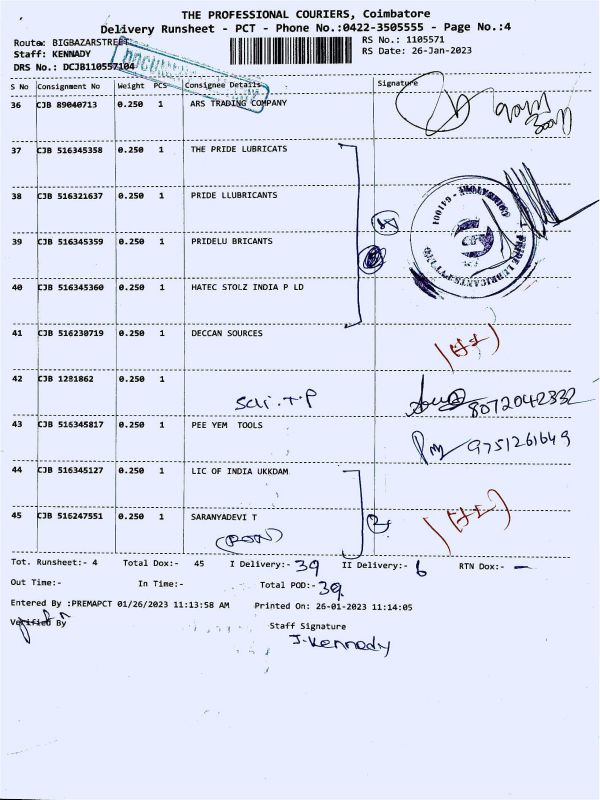 THE PROFESSIONAL COURIERS, Coimbatore
Delivery Runsheet - PCT - Phone No.:0422-3505555 - Page No.:4
Route: BIGBAZARSTREET RS No.: 1105571
Staff: KENNADY RS Date: 26-Jan-2023
DRS No.: DCJB110557104
S No Consignment No Weight PCS Consignee Details Signature
36 CJB 89040713 0.250 1 ARS TRADING COMPANY
37 CJB 516345358 0.250 1 THE PRIDE LUBRICATS
38 CJB 516321637 0.250 1 PRIDE LLUBRICANTS
39 CJB 516345359 0.250 1 PRIDELU BRICANTS
PRIDE LUBRICANTS
COIMBATORE - 641001
40 CJB 516345360 0.250 1 HATEC STOLZ INDIA P LD
41 CJB 516230719 0.250 1 DECCAN SOURCES
42 CJB 1281862 0.250 1
8072042332
43 CJB 516345817 0.250 1 PEE YEM TOOLS
9751261649
44 CJB 516345127 0.250 1 LIC OF INDIA UKKDAM
45 CJB 516247551 0.250 1 SARANYADEVI T
Tot. Runsheet:- 4 Total Dox:- 45 I Delivery:- 39 II Delivery:- 6 RTN Dox:- —
Out Time:- In Time:- Total POD:- 39
Entered By :PREMAPCT 01/26/2023 11:13:58 AM Printed On: 26-01-2023 11:14:05
Verified By Staff Signature
J. Kennady